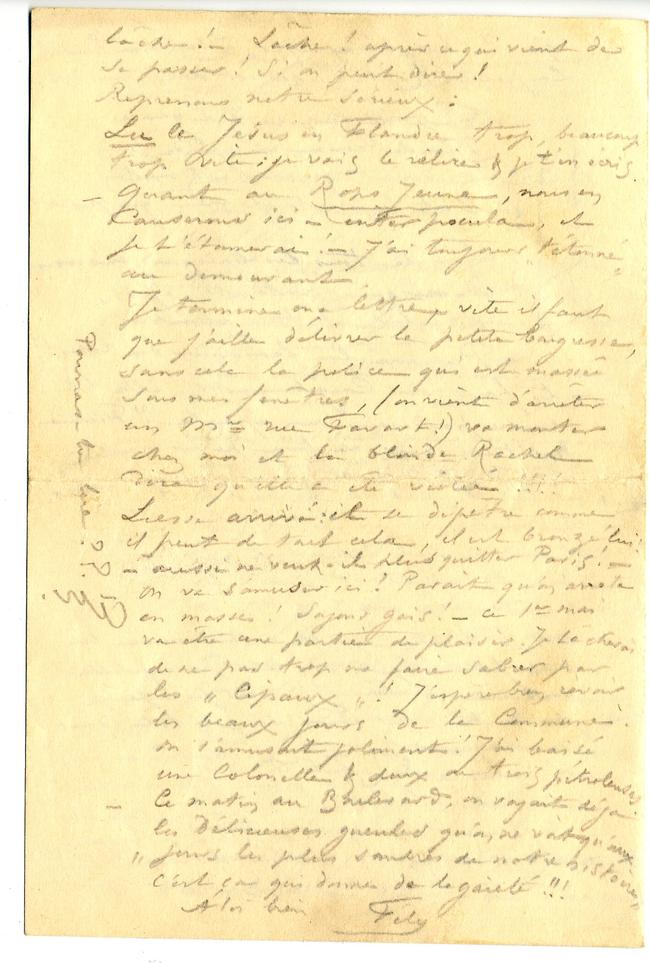 lâche ! – Lâche ! après ce qui vient de
se passer ! Si on peut dire !
Reprenons notre sérieux :
Lu le Jésus en Flandre trop, beaucoup
trop vite ; je vais le relire & je t'en écris.
– Quant au Rops Jeune, nous en
causerons ici – inter pocula, et
je t'étonnerai ! – J'ai toujours "étonné"
au demeurant
Je termine ma lettre vite il faut
que j'aille délivrer la petite
sans cela la police qui est massée
sous mes fenêtres, (on vient d'arrêter
un Mr rue Favart !) va monter
chez moi et la blonde Rachel
dira qu'elle a été violée !!!!
Liesse arrivé : il se dépêtre comme
il peut de tout cela, il est bronzé lui !
– aussi ne veut-il plus quitter Paris ! –
On va s'amuser ici ! Parait qu'on arrête
en masse ! Soyons gais ! – ce 1er mai
va être une partie de plaisir. Je tâcherai
de ne pas trop me faire sabrer par
les "Cipaux" ! J'espère bien revoir
les beaux jours de la Commune.
On s'amusait joliment ! J'ai baisé
une Colonelle & deux ou trois pétroleuses
– Ce matin au Boulevard, on voyait déjà
les délicieuses gueules qu'on ne voit qu'aux
"jours les plus sombres de notre histoire"
c'est ça qui donne de la gaieté !!!
A toi bien
Fély
Pourras-tu lire ??